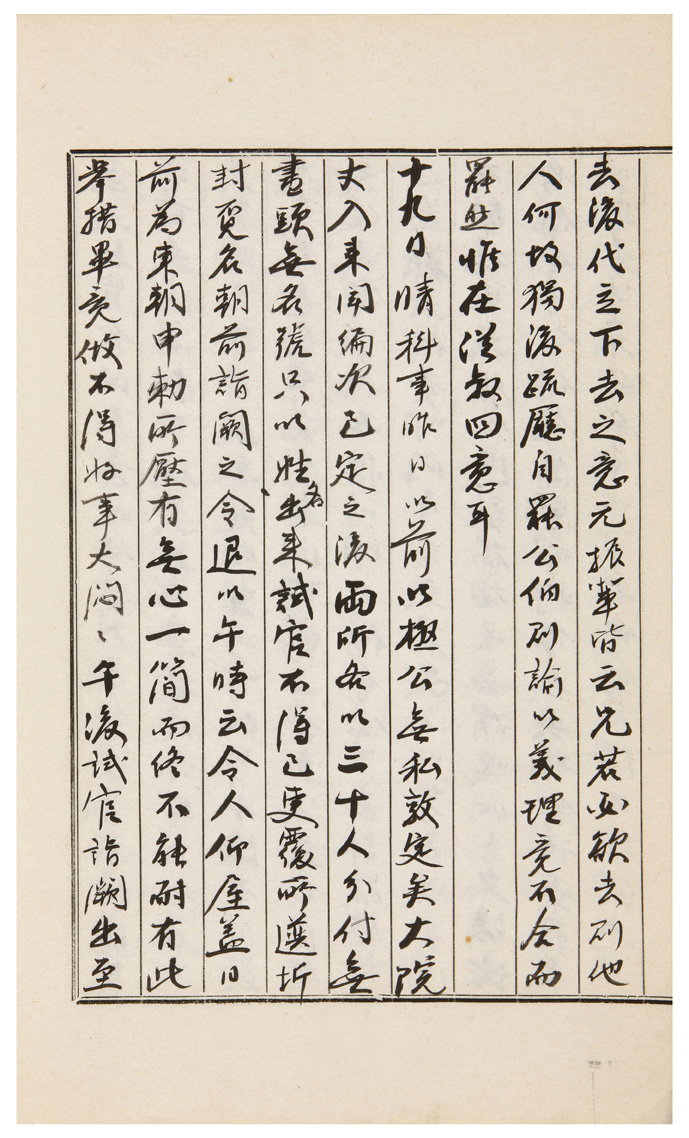 去後代立下去之意元振輩皆云兄若必欲去則他
人何故獨後疏廳自罷公伯則諭以義理竟不会而
罷出惟在從叔四意耳
十九日晴科事昨日以前以極公無私敦定矣大院
丈入来聞編次已定之後兩所各以三十人分付無
畫頭無名號只以姓名出来試官不得已更覆所選坼
封覓名朝前詣闕之令退以午時云令人仰屋盖日
前為東朝申勅所壓有無心一簡而終不能耐有此
举措畢竟做不得好事大悶〻午後試官詣闕出至